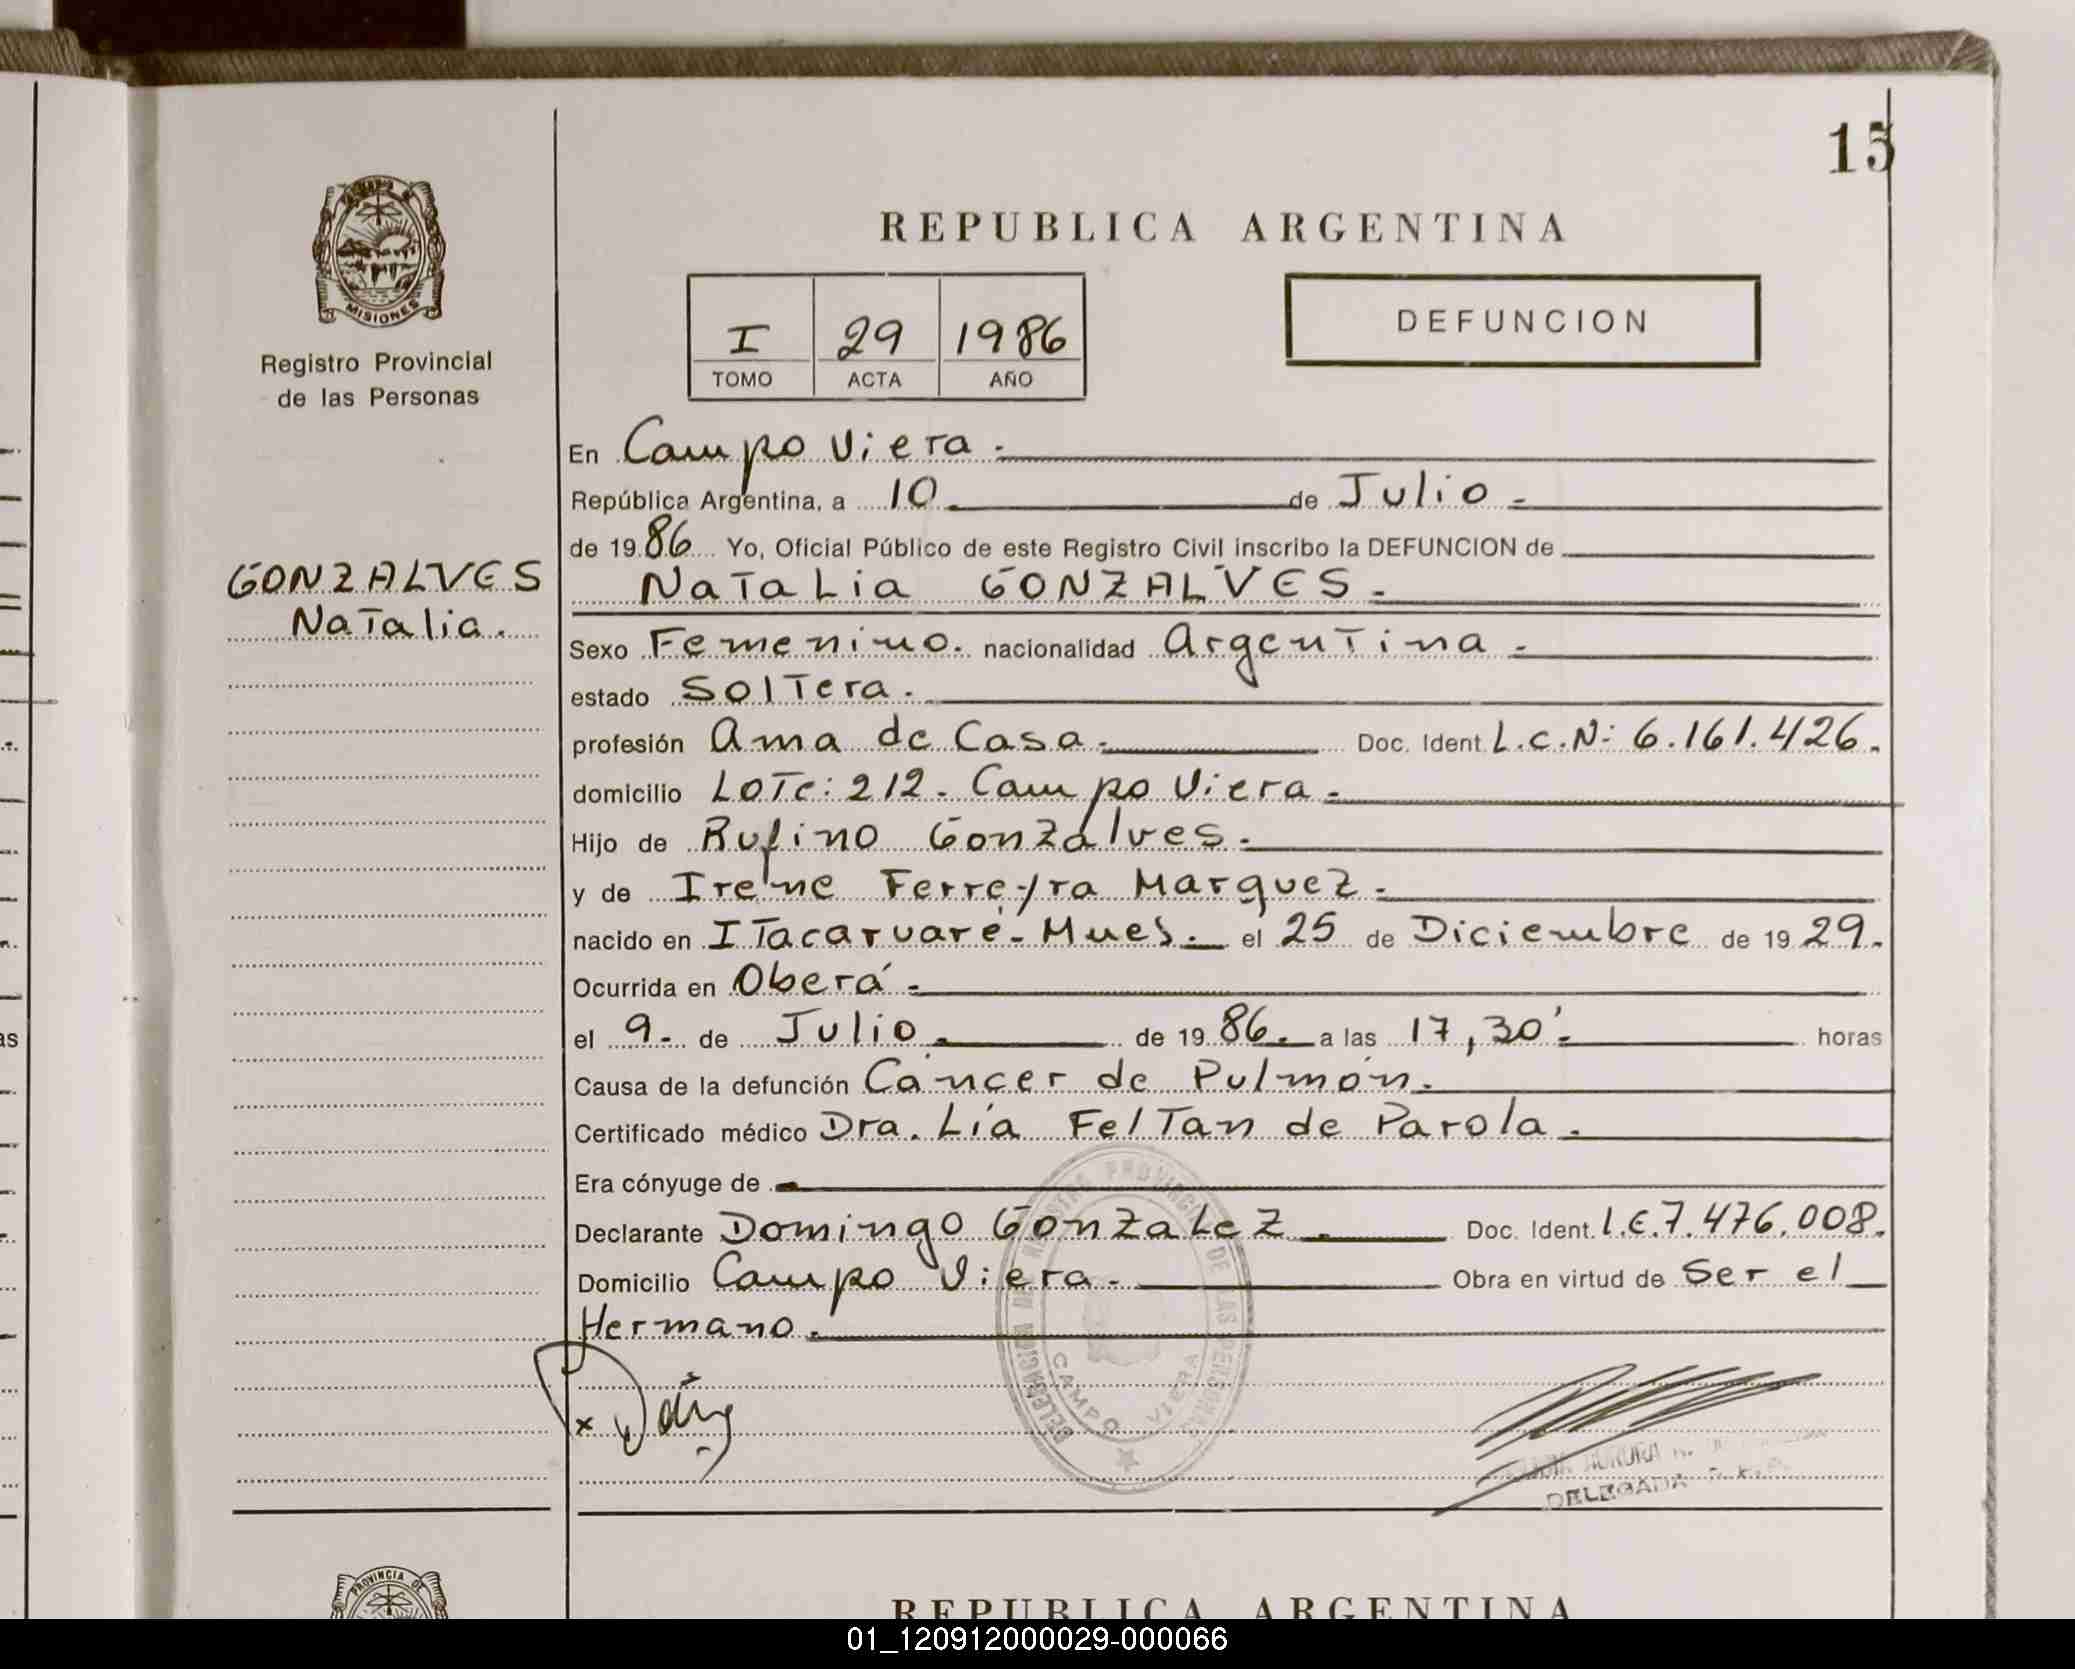 15
REPUBLICA ARGENTINA
MISIONES
Registro Provincial
de las Personas
I 29 1986
TOMO ACTA AÑO
DEFUNCION
GONZALVES
Natalia.
En Campo Viera.
República Argentina, a 10. de Julio.
de 1986 Yo, Oficial Público de este Registro Civil inscribo la DEFUNCION de
Natalia GONZALVES.
Sexo Femenino. nacionalidad Argentina.
estado Soltera.
profesión Ama de Casa. Doc. Ident. L.C.N: 6.161.426.
domicilio Lote: 212. Campo Viera.
Hijo de Rufino Gonzalves.
y de Irene Ferreyra Marquez.
nacido en Itacaruaré-Mnes. el 25 de Diciembre de 1929.
Ocurrida en Oberá.
el 9. de Julio. de 1986. a las 17,30'. horas
Causa de la defunción Cáncer de Pulmón.
Certificado médico Dra. Lía Feltan de Parola.
Era cónyuge de
Declarante Domingo Gonzalez. Doc. Ident. L.E.7.476.008.
Domicilio Campo Viera. Obra en virtud de Ser el
Hermano.
CAMPO VIERA
DELEGADA
PROVINCIA DE
REPUBLICA ARGENTINA
01_120912000029-000066